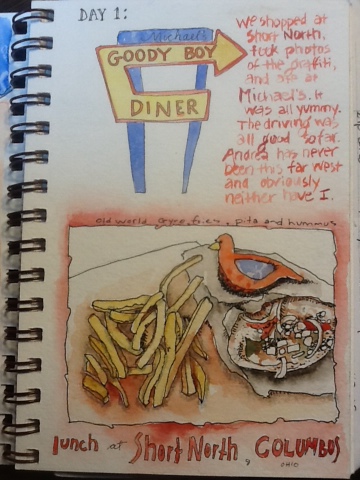 DAY 1:
Michael's
GOODY BOY
DINER
We shopped at
Short North,
took photos
of the graffiti,
and ate at
Michael's. It
was all yummy.
The driving was
all good so far.
Andrea has never
been this far west
and obviously
neither have I.
old world gyro, fries, pita and hummus
lunch at Short North, COLUMBUS
OHIO